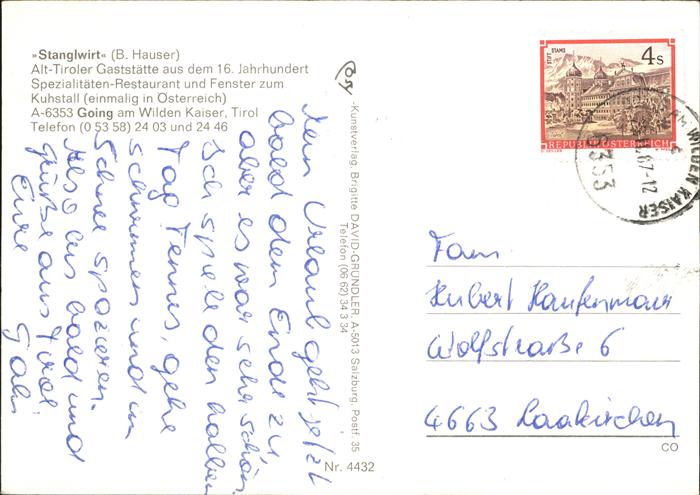 »Stanglwirt« (B. Hauser)
Alt-Tiroler Gaststätte aus dem 16. Jahrhundert
Spezialitäten-Restaurant und Fenster zum
Kuhstall (einmalig in Österreich)
A-6353 Going am Wilden Kaiser, Tirol
Telefon (0 53 58) 24 03 und 24 46
Mein Urlaub geht jetzt
bald dem Ende zu,
aber es war sehr schön.
Ich spiele den halben
Tag Tennis, gehe
schwimmen und im
Schnee spazieren.
Also bis bald und
grüße aus Tirol
Eure Gabi
-Kunstverlag, Brigitte DAVID-GRÜNDLER, A-5013 Salzburg, Postf. 35
Telefon (06 62) 34 3 34
Nr. 4432
STIFT STAMS
4 S
REPUBLIK ÖSTERREICH
AM WILDEN KAISER
87-12
6353
Fam.
Hubert Haufenmair
Wolfstraße 6
4663 Laakirchen
CO